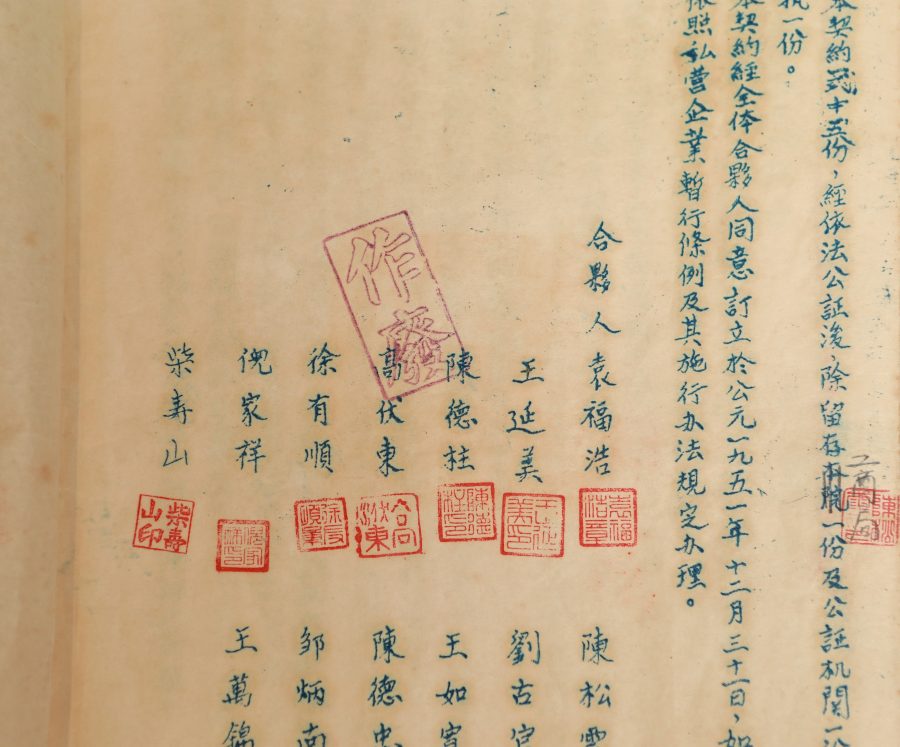 本契約弎十五份，經依法公証後，除留存有関一份及公証机関一份
执一份。
本契約經全体合夥人同意訂立於公元一九五一年十二月三十一日，如
依照私营企業暫行條例及其施行办法規定办理。
合夥人袁福浩
王延美
陳德柱
高伏東
徐有順
倪家祥
柴寿山
作廢
柴壽山印
陳松雲
劉古
王如
陳德忠
邹炳南
王萬錦